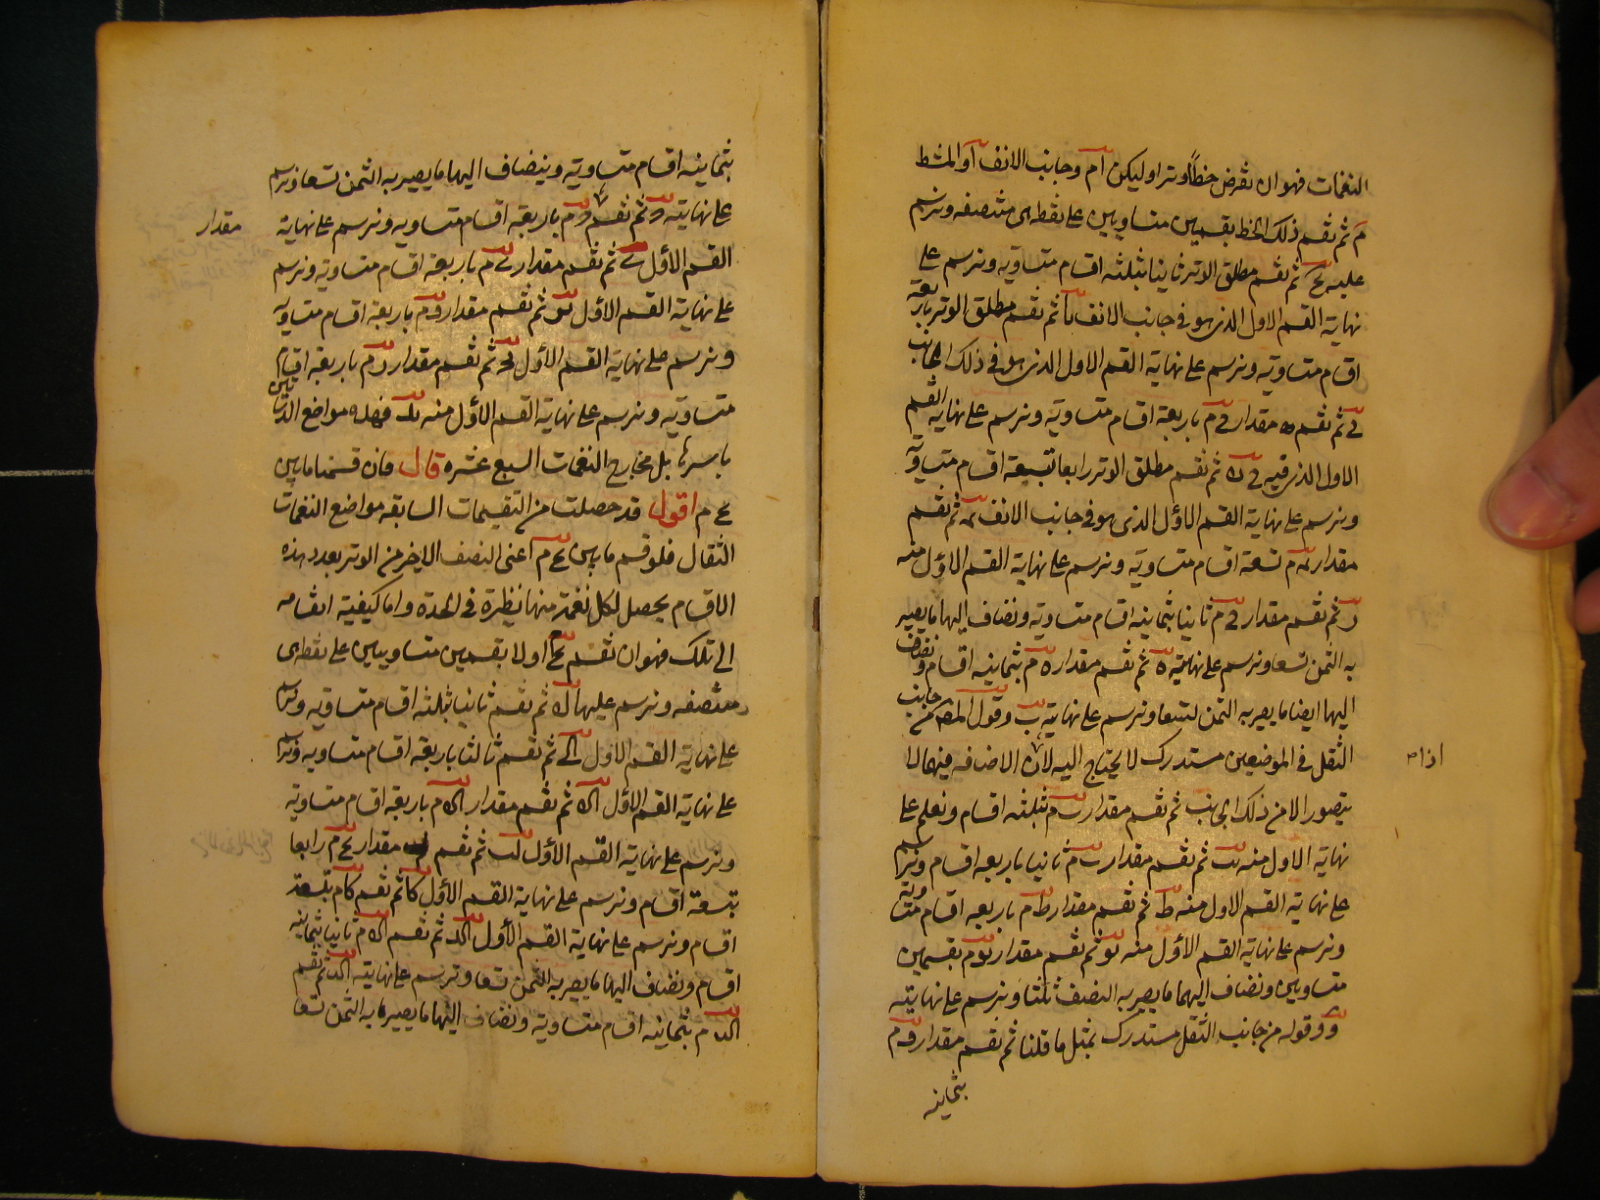 النغمات فهو ان نفرض خطاً وترا وليكن ام وجانب الانف ا والمشط
م ثم نقسم ذلك الخط بقسمين متساويين على نقطة هى منتصفه ونرسم
عليه يح ثم نقسم مطلق الوتر ثانيا بثلثه اقسام متساويه ونرسم على
نهاية القسم الاول الذى هو فى جانب الانف يا ثم نقسم مطلق الوتر باربعة
اقسام متساويه ونرسم على نهاية القسم الاول الذى هو فى ذلك الجانب
ح ثم نقسم مقدار ح م باربعة اقسام متساويه ونرسم على نهاية القسم
الاول الذى فيه ح يه ثم نقسم مطلق الوتر رابعا بتسعة اقسام متساوية
ونرسم على نهاية القسم الاول الذى هو فى جانب الانف د ثم نقسم
مقدار د م تسعة اقسام متساويه ونرسم على نهاية القسم الاول منه
ز ثم نقسم مقدار ح م ثانيا بثمانيه اقسام متساويه ونضاف اليها ما يصير
به الثمن تسعا ونرسم على نهايته ه ثم نقسم مقدار ه م بثمانيه اقسام ونضف
اليها ايضا ما يصير به الثمن تسعا ونرسم على نهايته ب وقول المص من جانب
الثقل فى الموضعين مستدرك لا يحتاج اليه لان الاضافه فيهما لا
يتصور الا من ذلك الجانب ثم نقسم مقدار ب م بثلثه اقسام ونعلم على
نهاية الاول منه يب ثم نقسم مقدار ب م ثانيا باربعه اقسام ونرسم
على نهاية القسم الاول منه ط ثم نقسم مقدار ط م باربعه اقسام متساوية
ونرسم على نهاية القسم الاول منه يو ثم نقسم مقدار يو م بقسمين
متساويين ونضاف اليهما ما يصير به النصف ثلثا ونرسم على نهايته
و وقوله من جانب الثقل مستدرك بمثل ما قلنا ثم نقسم مقدار و م
بثمانيه
بثمانيه اقسام متساويه وينضاف اليها ما يصير به الثمن تسعا ونرسم
على نهايته ج ثم نقسم ج م باربعة اقسام متساويه ونرسم على نهاية
مقدار
القسم الاول ى ثم نقسم مقدار ى م باربعه اقسام متساويه ونرسم
على نهاية القسم الاول يز ثم نقسم مقدار و م باربعة اقسام متساوية
ونرسم على نهاية القسم الاول يج ثم نقسم مقدار ز م باربعه اقسام
متساويه ونرسم على نهاية القسم الاول منه يد فهذه مواضع الدساتين
باسرها بل مخارج النغمات السبع عشره قال فان قسمنا ما بين
يح م اقول قد حصلت من التقسيمات السابقه مواضع النغمات
الثقال فلو قسم ما بين يح م اعنى النصف الاخر من الوتر بعدد هذه
الاقسام يحصل لكل نغمة منها نظيرة فى الحدة واما كيفية انقسامه
الى تلك فهو ان نقسم يح م اولا بقسمين متساويين على نقطة هى
منتصفه ونرسم عليها له ثم نقسم ثانيا بثلثه اقسام متساويه ونرسم
على نهاية القسم الاول كح ثم نقسم ثالثا باربعه اقسام متساويه ونرسم
على نهاية القسم الاول كه ثم نقسم مقدار كه م باربعه اقسام متساويه
ونرسم على نهاية القسم الاول لب ثم نقسم مقدار يح م رابعا
بتسعة اقسام ونرسم على نهاية القسم الاول كا ثم نقسم كا م بتسعة
اقسام ونرسم على نهاية القسم الاول كد ثم نقسم كه م ثانيا بثمانيه
اقسام ونضاف اليها ما يصير به الثمن تسعا ونرسم على نهايته كب ثم نقسم
كب م بثمانيه اقسام متساويه ونضاف اليها ما يصير به الثمن تسعا